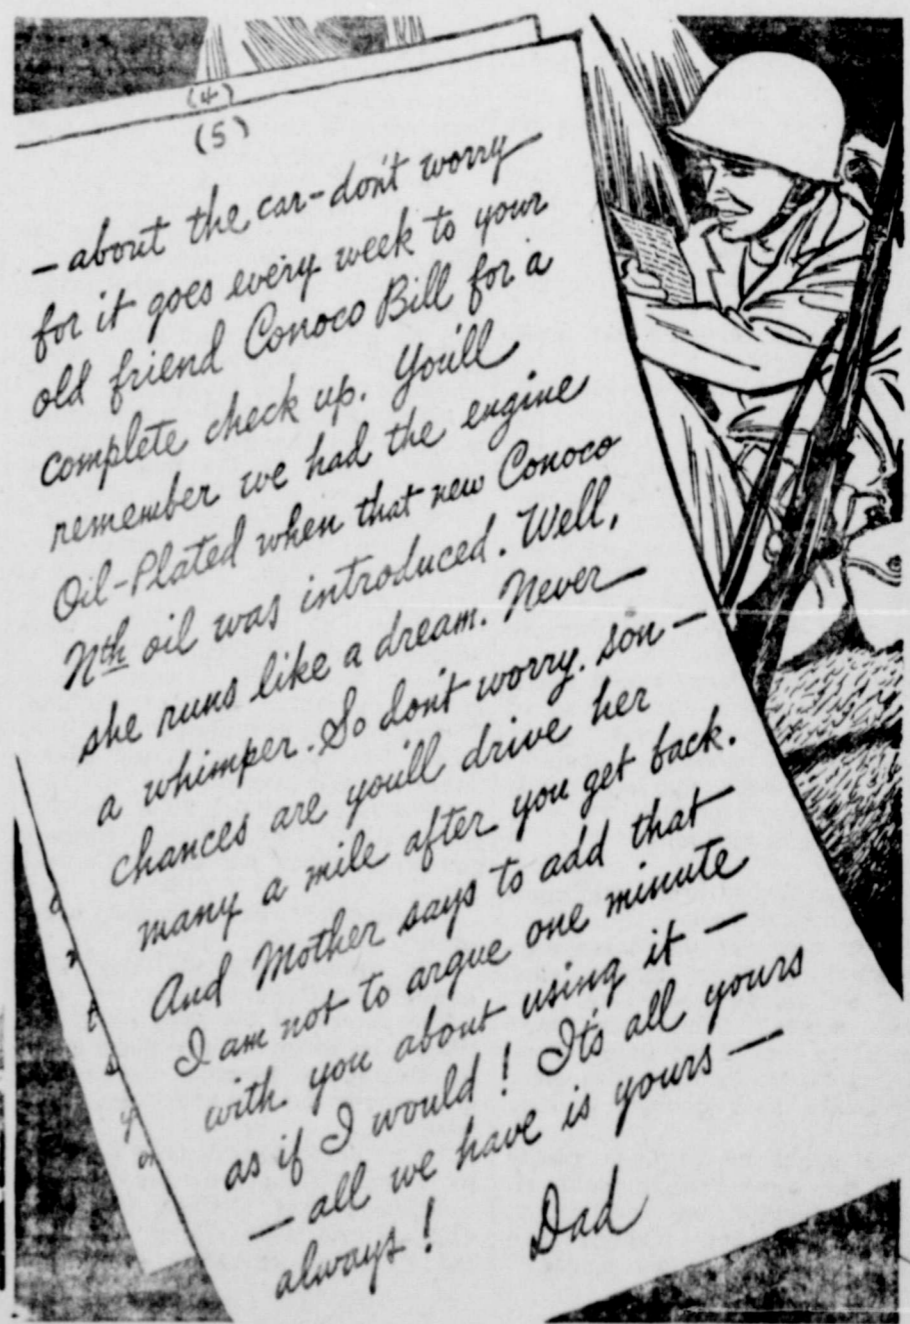 (4)
(5)
— about the car — don't worry
for it goes every week to your
old friend Conoco Bill for a
complete check up. You'll
remember we had the engine
Oil-Plated when that new Conoco
Nth oil was introduced. Well,
she runs like a dream. Never
a whimper. So don't worry. son —
chances are you'll drive her
many a mile after you get back.
And Mother says to add that
I am not to argue one minute
with you about using it —
as if I would! It's all yours
— all we have is yours —
always!
Dad